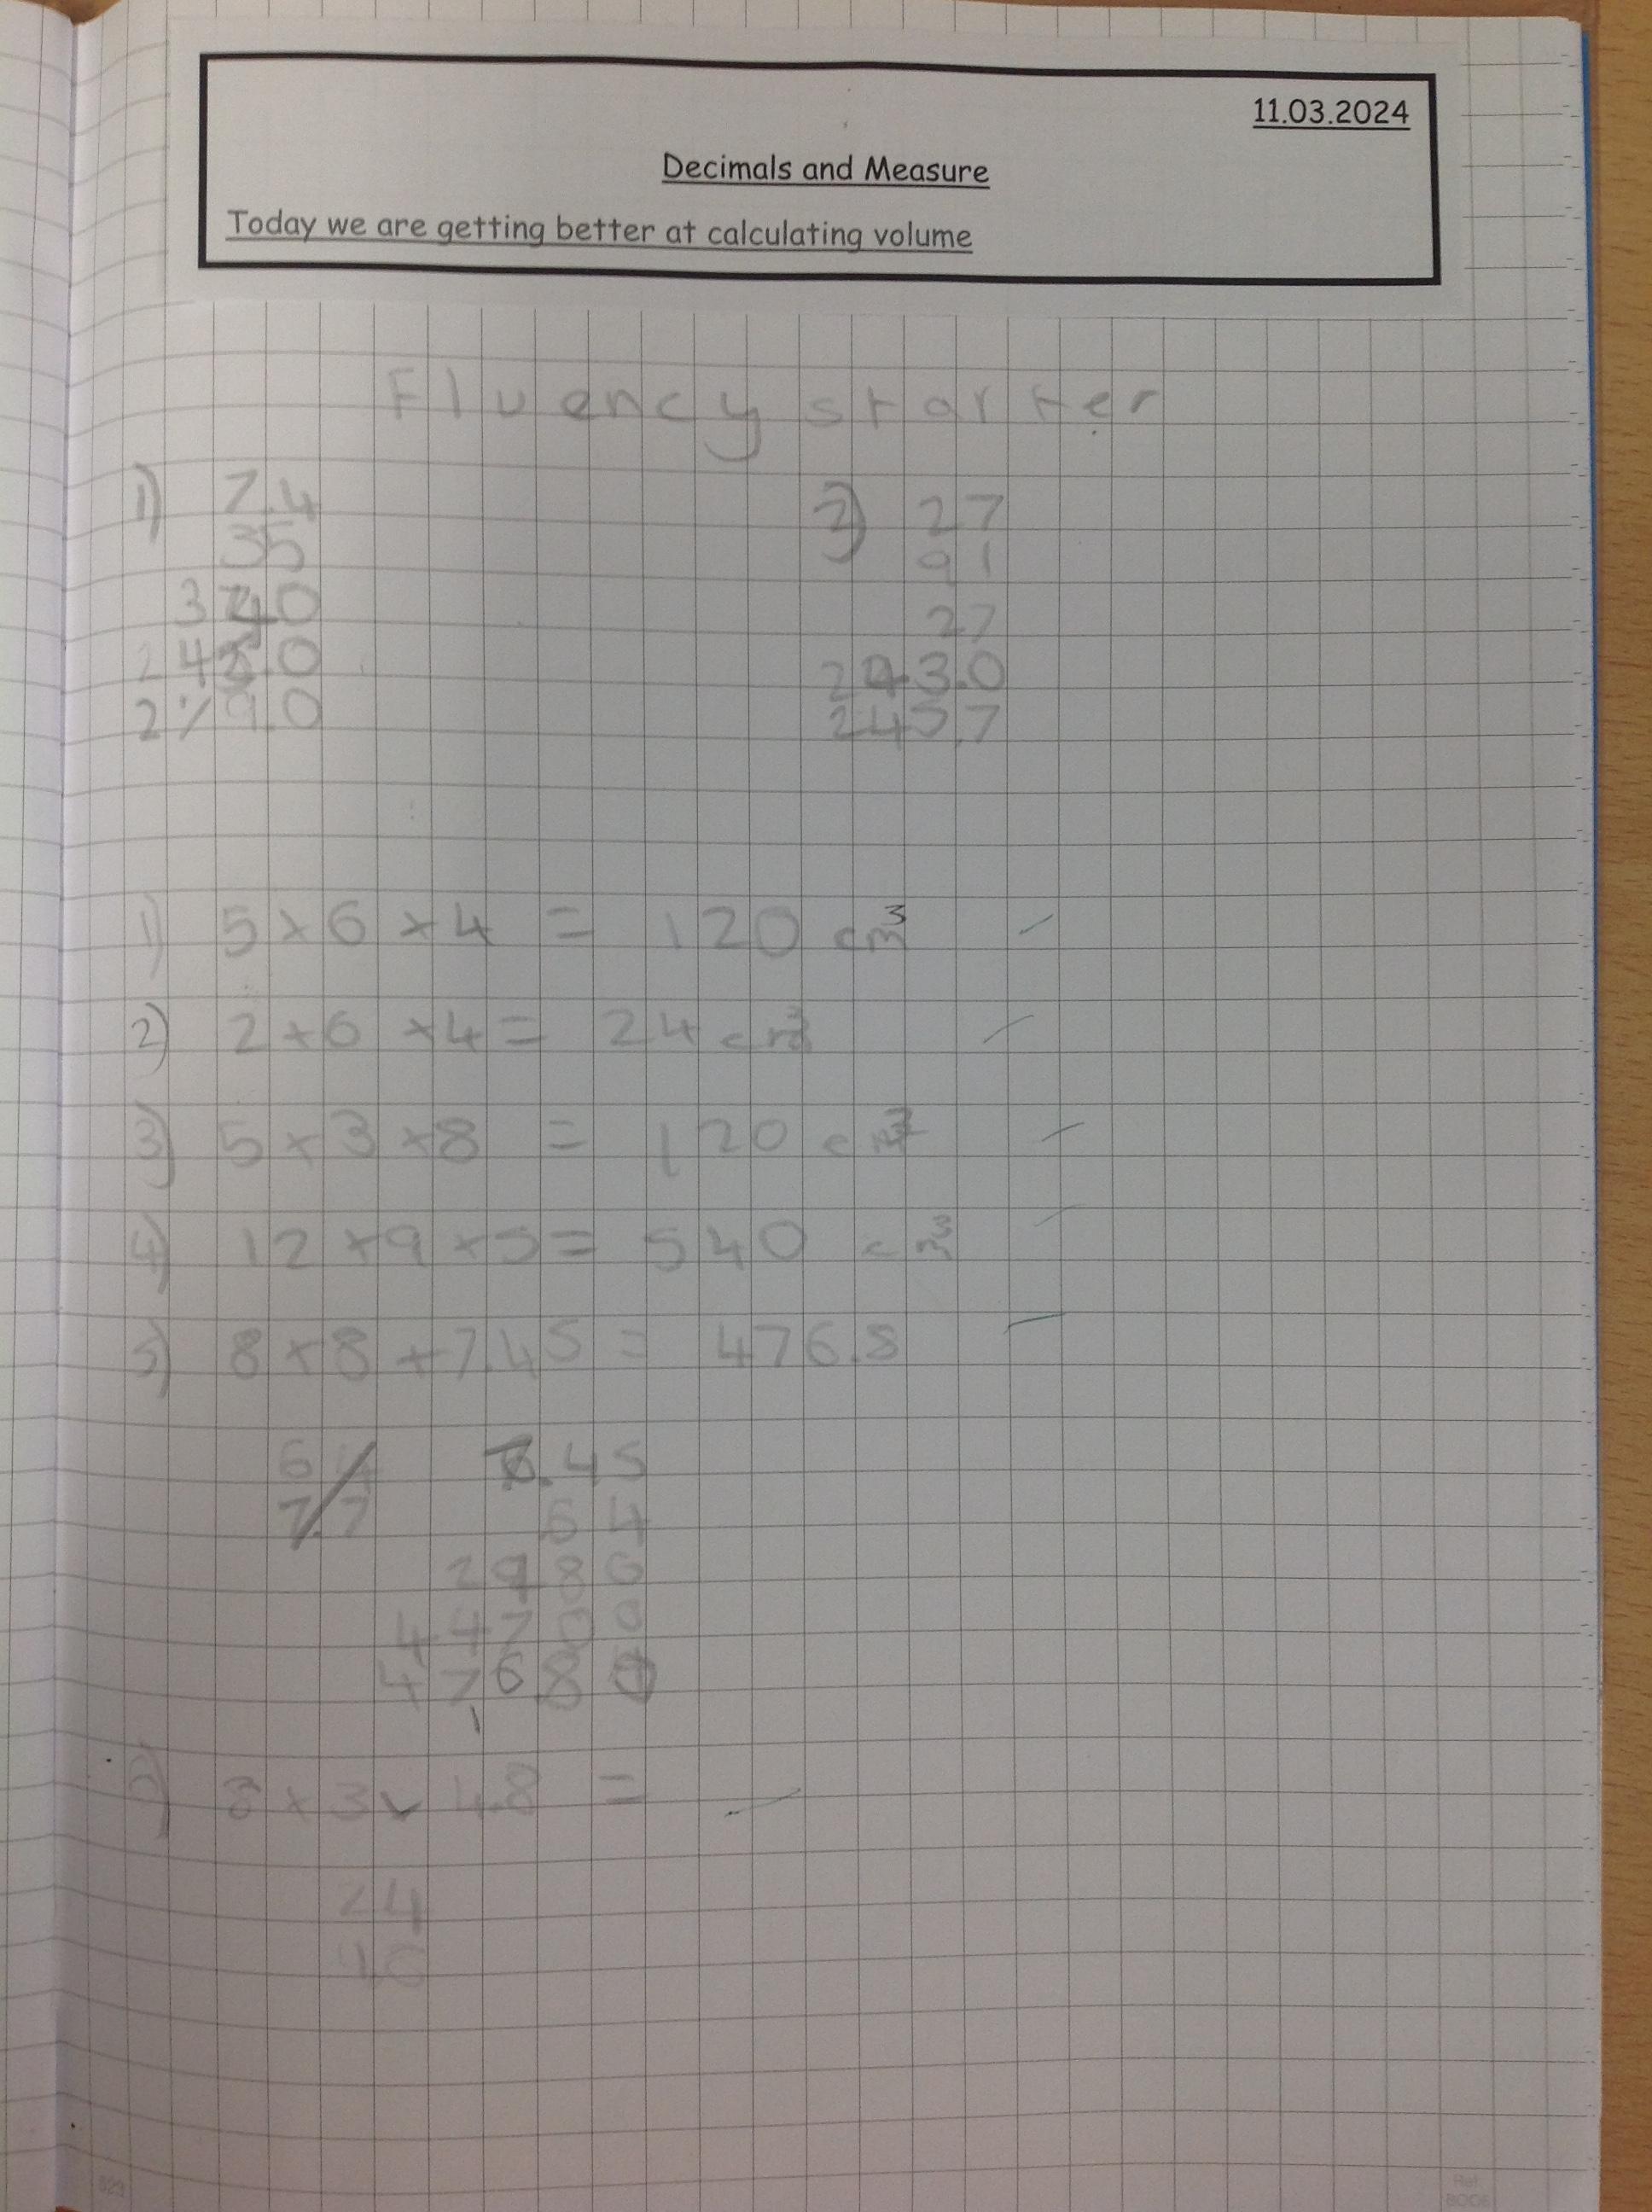 11.03.2024
Decimals and Measure
Today we are getting better at calculating volume
Fluency starter
1) 7.4
35
3 0
2 4 .0
2 9.0
2) 27
91
27
243.0
245.7
1) 5 × 6 × 4 = 120 cm³
2) 2 × 6 × 4 = 24 cm³
3) 5 × 3 × 8 = 120 cm³
4) 12 × 9 × 5 = 540 cm³
5) 8 × 8 × 7.45 = 476.8
7.45
64
2980
44700
47680
1
6) 8 × 3 × 4.8 =
24